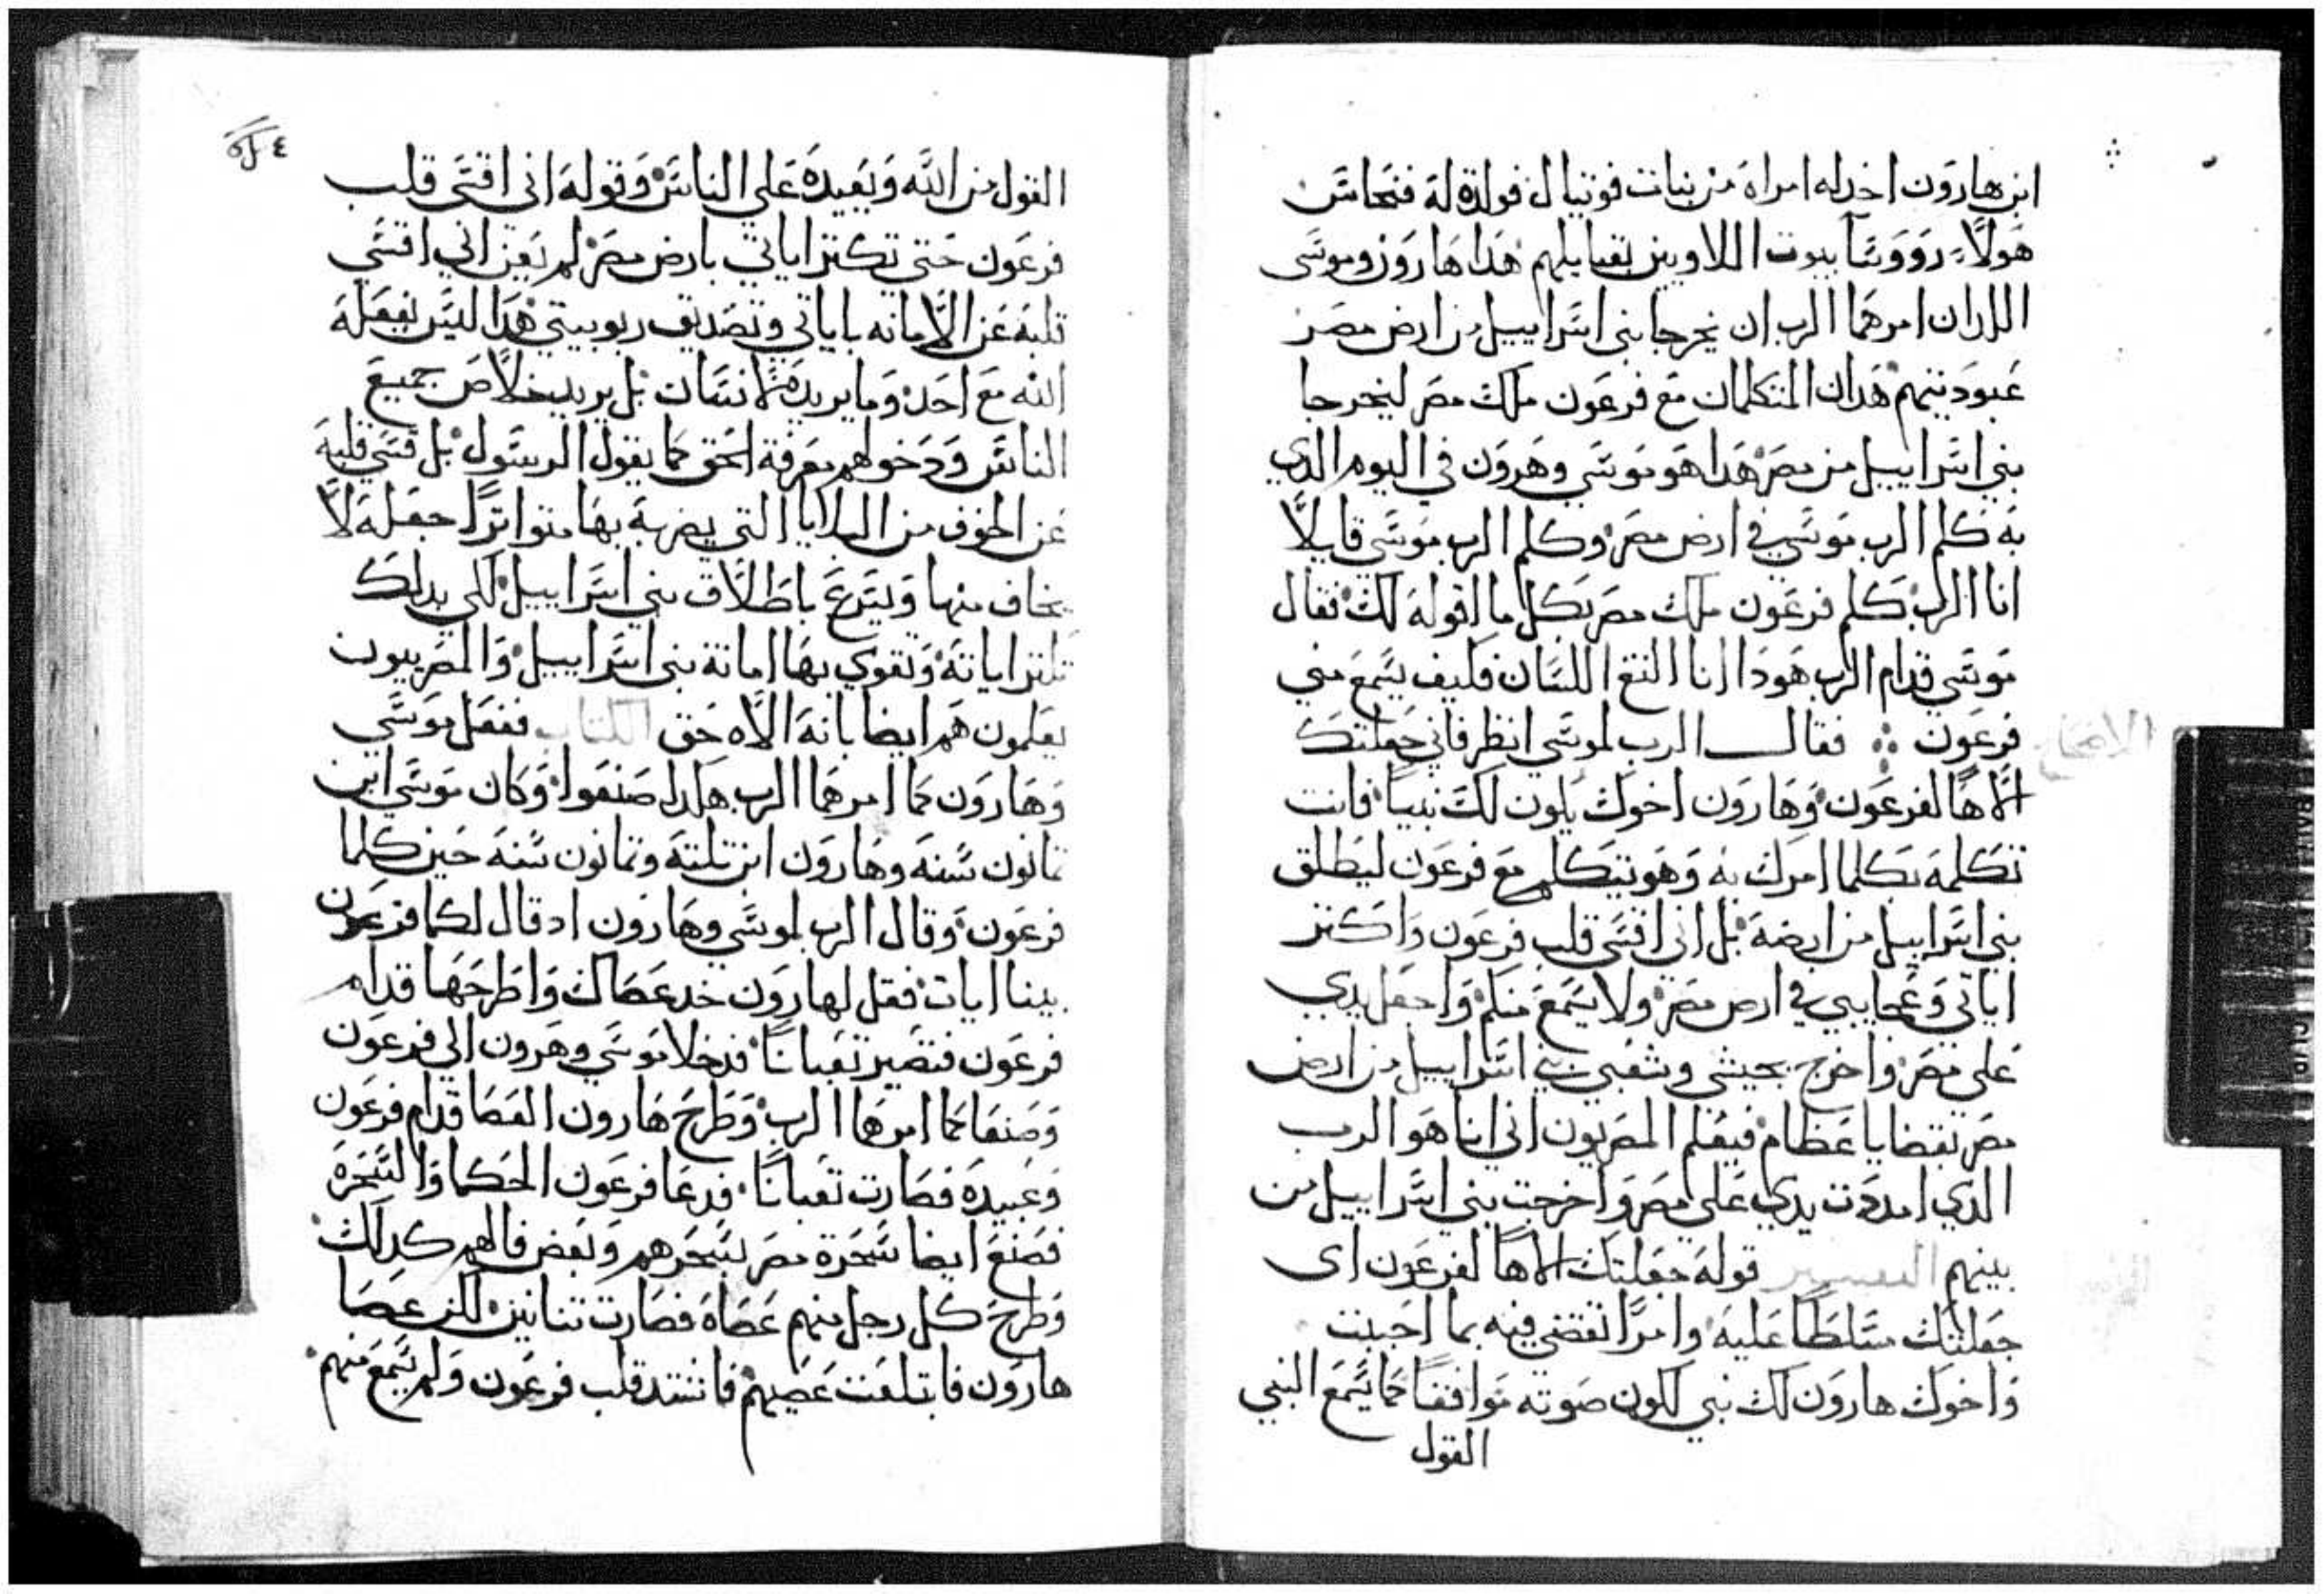 ابن هارون اخد له امراة من بنات فوتيال فولدة له فنحاس
هولاء رووسا بيوت اللاويين بقبايلهم هدا هارون وموسى
اللدان امرهما الرب ان يخرجا بني اسراييل من ارض مصر
عبوديتهم هدان المتكلمان مع فرعون ملك مصر ليخرجا
بني اسراييل من مصر هدا هو موسي وهرون في اليوم الدي
به كلم الرب موسي في ارض مصر وكلم الرب موسي قايلاً
انا الرب كلم فرعون ملك مصر بكل ما اقوله لك فقال
موسي قدام الرب هودا انا التغ اللسان فكيف يسمع مني
فرعون فقال الرب لموسي انظر فاني جعلتك
الاهاً لفرعون وهارون اخوك يكون لك نبياً فانت
تكلمه بكلما امرك به وهو يتكلم مع فرعون ليطلق
بني اسراييل من ارضه بل اني اقسي قلب فرعون واكتر
اياتي وعجايبي في ارض مصر ولا يسمع منكم واجعل يدي
علي مصر واخرج بجيشي وشعبي بني اسراييل من ارض
مصر بقضايا عظام فيعلم المصريون اني انا هو الرب
الدي امددت يدي علي مصر واخرجت بني اسراييل من
بينهم التفسير قوله جعلتك الاهاً لفرعون اى
جعلتك مسلطاً عليه وامراً تقضي فيه بما احببت
واخوك هارون لك نبي لكون صوته موافقاً كما يسمع النبي
القول
القول من الله ويعيده علي الناس وقوله اني اقسي قلب
فرعون حتى تكتر اياتي بارض مصر لم يعن اني اقسي
قلبه عن الامانه باياتي وتصديق ربوبيتي هدا ليس يفعله
الله مع احد وما يريده لانسان بل يريد خلاص جميع
الناس ودخولهم معرفة الحق كما يقول الرسول بل قسي قلبه
عن الخوف من البلايا التي يضربه بها متواتراً جعله لا
يخاف منها ويسرع باطلاق بني اسراييل لكي بدلك
تكتر اياته وتقوي بها امانة بني اسراييل والمصرييون
يعلمون هم ايضا بانه الاه حق الكتاب ففعل موسي
وهارون كما امرهما الرب هكدا صنعوا وكان موسي ابن
تمانون سنه وهارون ابن تلته وتمانون سنه حين كلما
فرعون وقال الرب لموسي وهارون ادقال لكما فرعون
بينا ايات فقل لهارون خد عصاك واطرحها قدام
فرعون فتصير تعباناً فدخلا موسي وهرون الي فرعون
وصنعا كما امرهما الرب وطرح هارون العصا قدام فرعون
وعبيده فصارت تعباناً فدعا فرعون الحكما والسحره
فصنع ايضا سحرة مصر بسحرهم وبعض فالهم كدلك
وطرح كل رجل منهم عصاه فصارت تنانين لكن عصا
هارون فابتلعت عصيهم فاشتد قلب فرعون ولم يسمع منهم